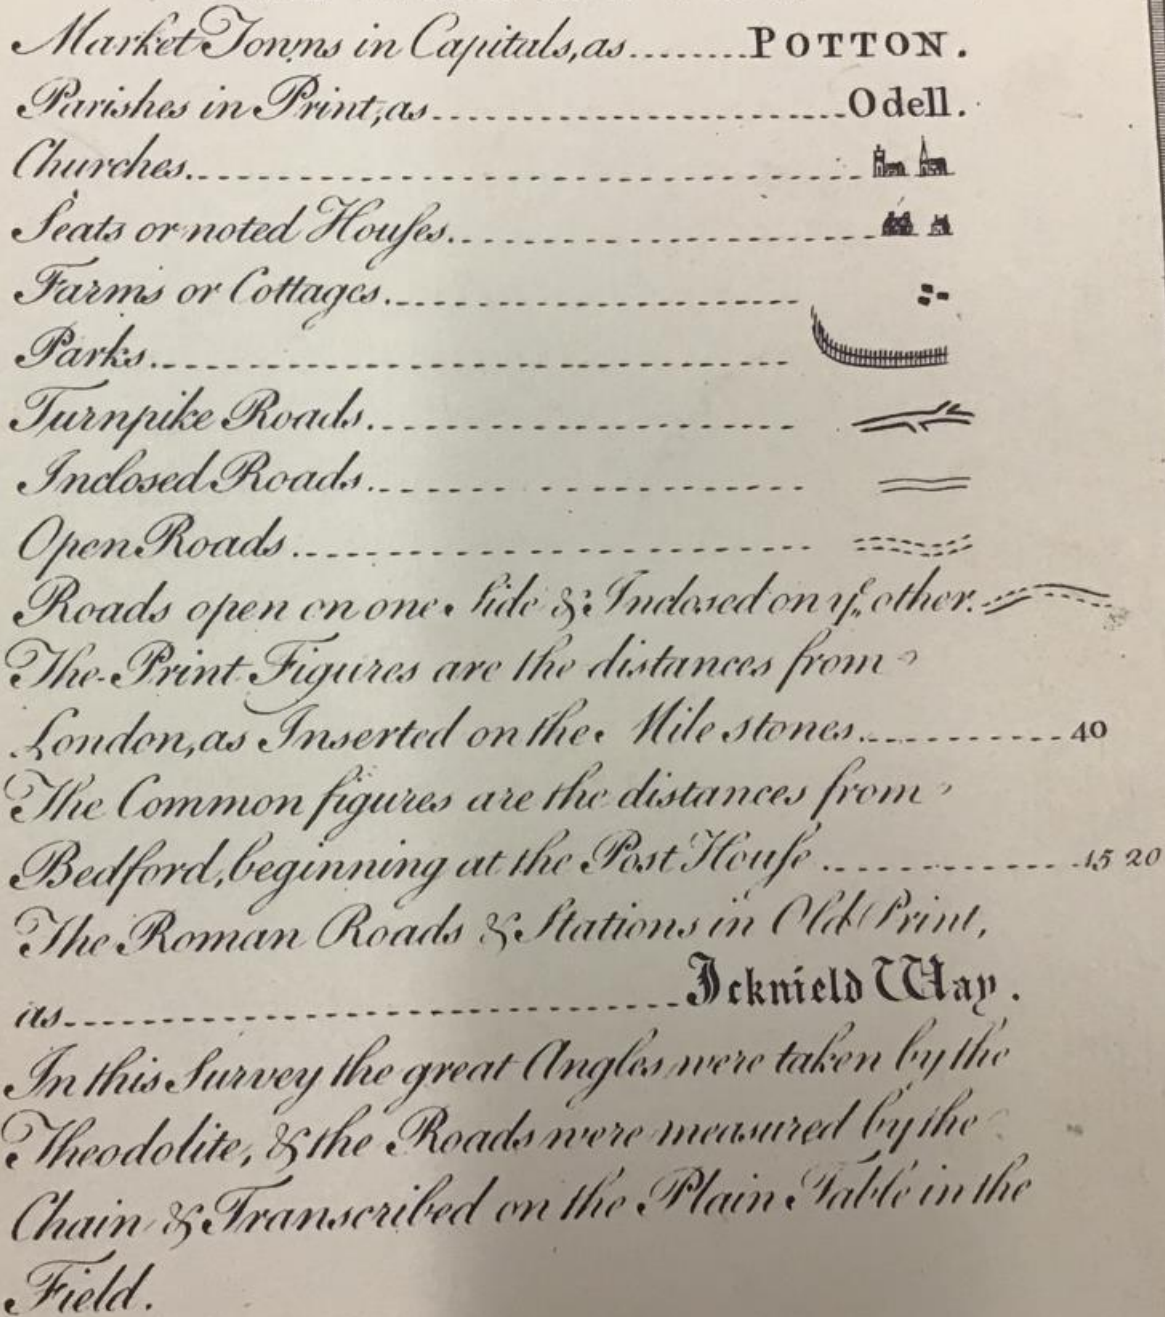 Market Towns in Capitals, as........POTTON.
Parishes in Print, as....................Odell.
Churches....................
Seats or noted Houſes....................
Farms or Cottages....................
Parks....................
Turnpike Roads....................
Inclosed Roads....................
Open Roads....................
Roads open on one Side & Inclosed on yͤ. other.
The Print Figures are the distances from
London, as Inserted on the Mile stones............40
The Common figures are the distances from
Bedford, beginning at the Post Houſe............15 20
The Roman Roads & Stations in Old Print,
as....................Icknield Way.
In this Survey the great Angles were taken by the
Theodolite, & the Roads were measured by the
Chain & Transcribed on the Plain Table in the
Field.